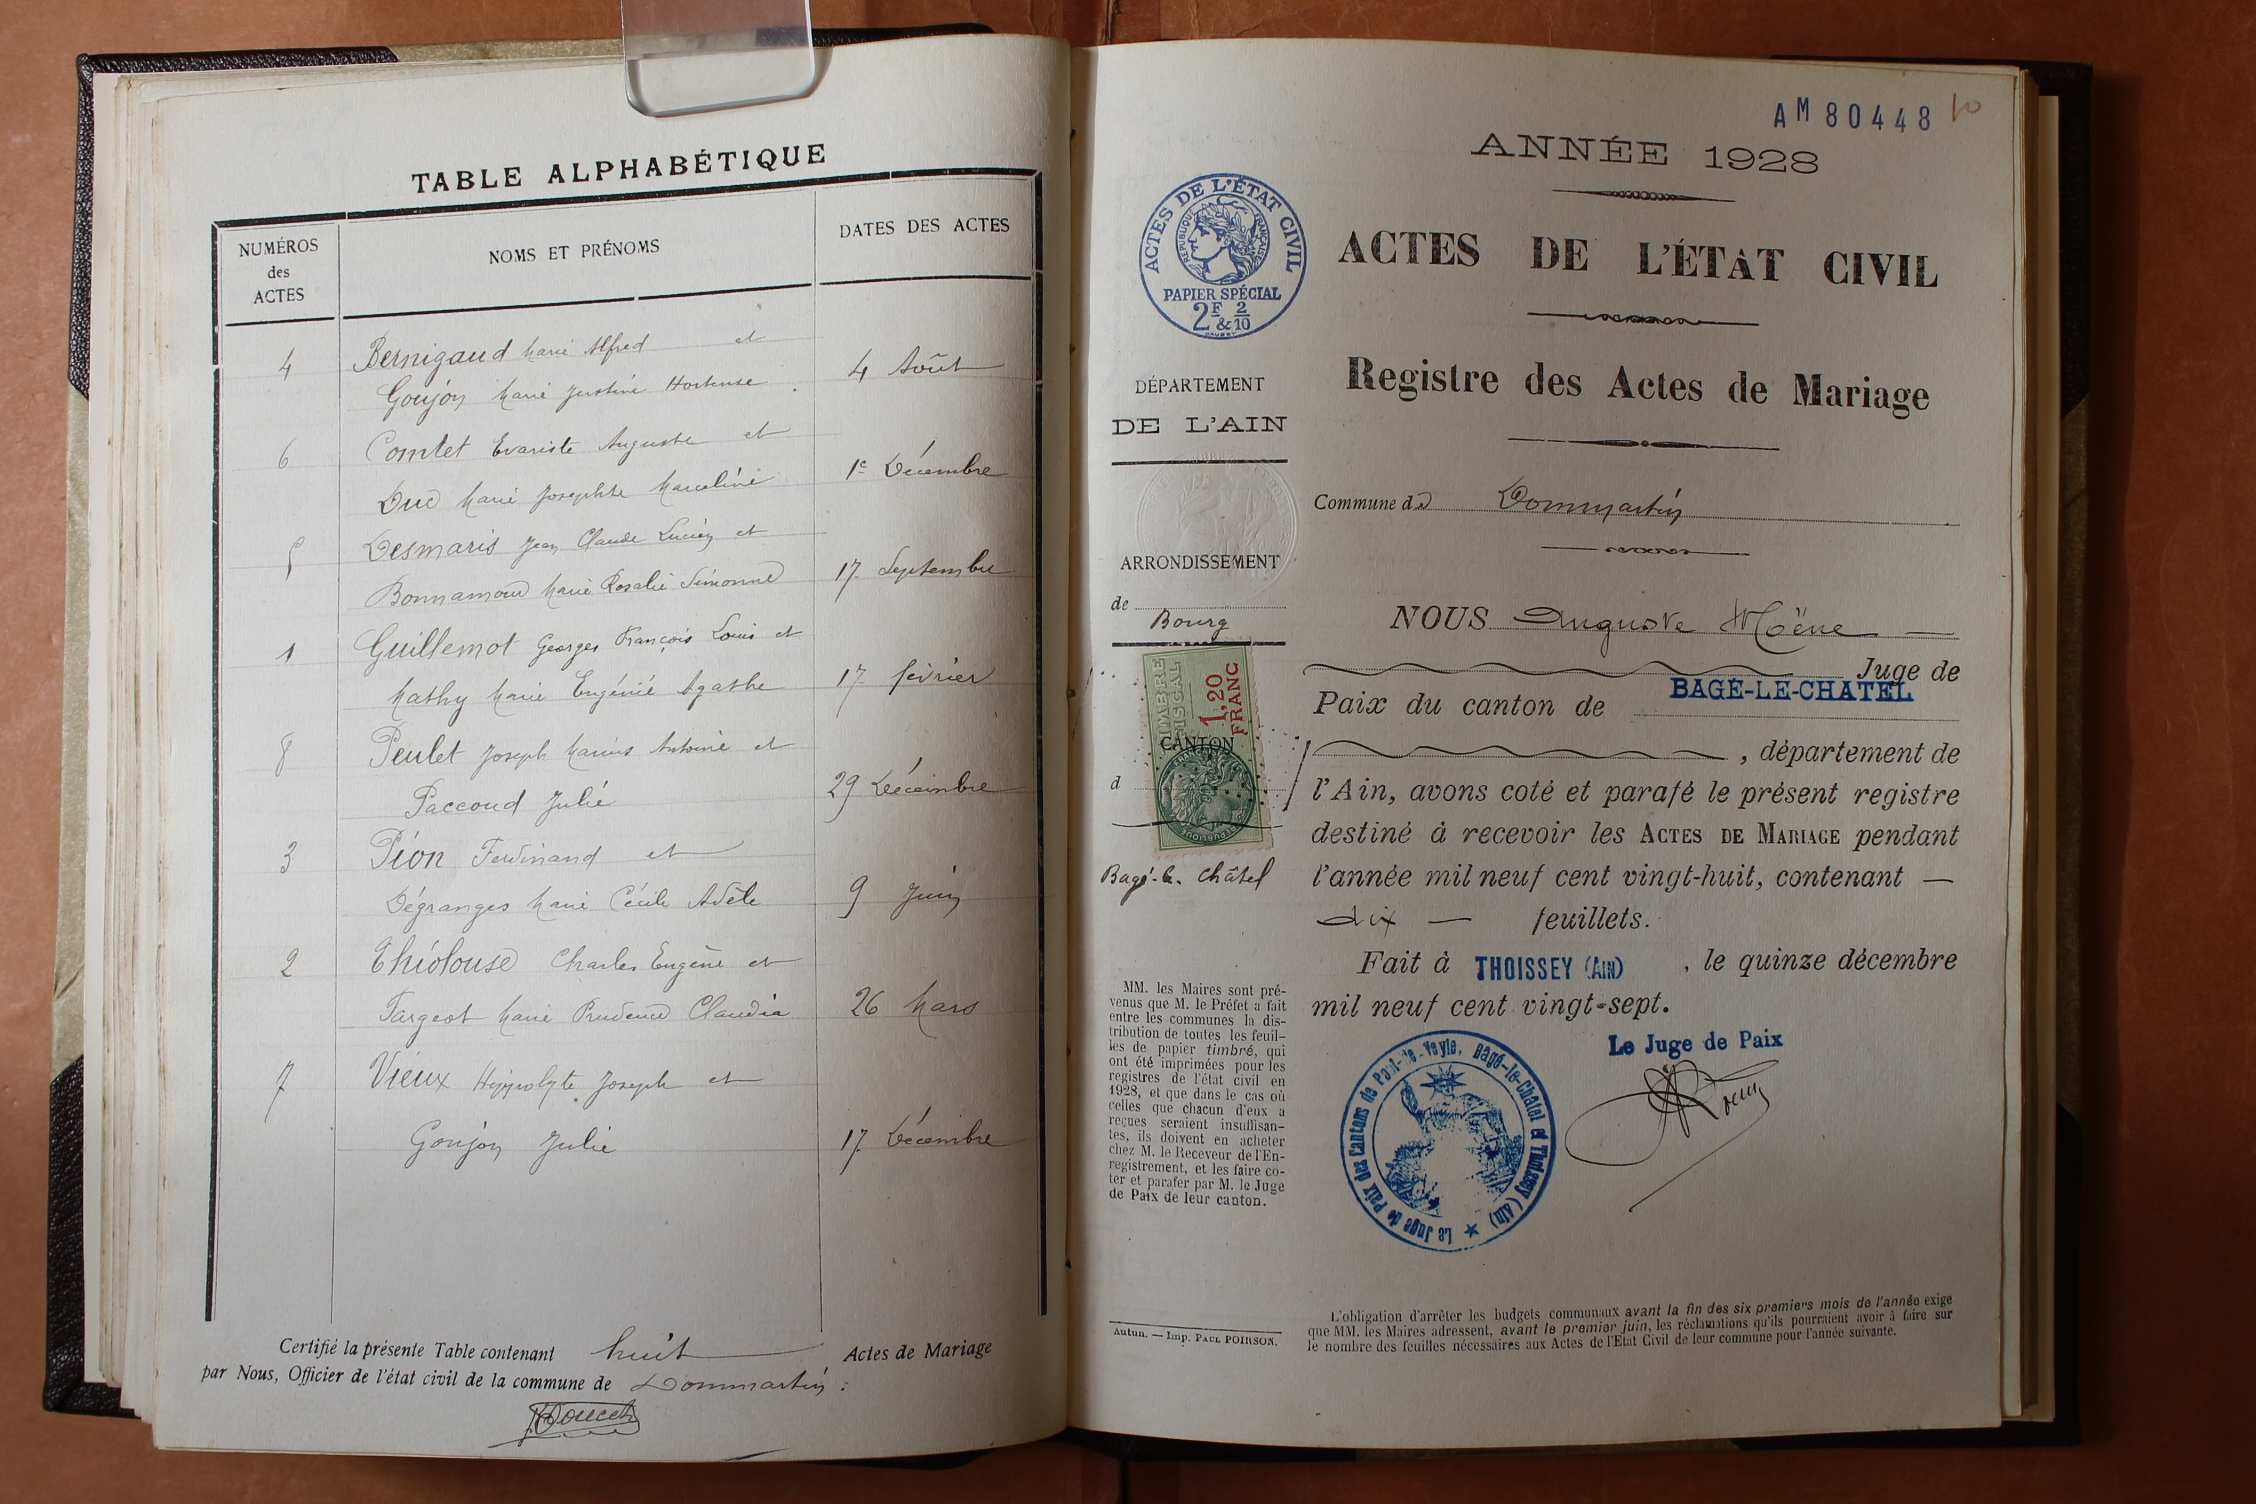 TABLE ALPHABÉTIQUE
NUMÉROS
des
ACTES
NOMS ET PRÉNOMS
DATES DES ACTES
4 Bernigaud Marie Alfred et
Goujon Marie Justine Hortense
4 Août
6 Comtet Evariste Auguste et
Duc Marie Josephte Marceline
1e Décembre
5 Desmaris Jean Claude Lucien et
Bonnamour Marie Rosalie Simonne
17 Septembre
1 Guillemot Georges François Louis et
Mathy Marie Eugénie Agathe
17 février
8 Peulet Joseph Marius Antoine et
Paccoud Julie
29 Décembre
3 Pion Ferdinand et
Dégranges Marie Cécile Adèle
9 Juin
2 Thiolouse Charles Eugène et
Fargeot Marie Prudence Claudia
26 Mars
7 Vieux Hyppolyte Joseph et
Goujon Julie
17 Décembre
Certifié la présente Table contenant huit Actes de Mariage
par Nous, Officier de l'état civil de la commune de Dommartin :
Doucet
AM 80448 10
ANNÉE 1928
ACTES DE L'ÉTAT CIVIL
RÉPUBLIQUE FRANÇAISE
PAPIER SPÉCIAL
2F & 2/10
ACTES DE L'ÉTAT CIVIL
Registre des Actes de Mariage
DÉPARTEMENT
DE L'AIN
Commune de Dommartin
ARRONDISSEMENT
de
Bourg
TIMBRE
FISCAL
1,20
FRANC
CANTON
d
Bagé-le-Châtel
NOUS Auguste Moëne
Juge de
Paix du canton de BAGÉ-LE-CHATEL
, département de
l'Ain, avons coté et parafé le présent registre
destiné à recevoir les ACTES DE MARIAGE pendant
l'année mil neuf cent vingt-huit, contenant —
dix — feuillets.
Fait à THOISSEY (AIN) , le quinze décembre
mil neuf cent vingt-sept.
Le Juge de Paix
Le Juge de Paix des Cantons de Pont-de-Veyle, Bagé-le-Châtel et Thoissey (Ain)
MM. les Maires sont pré-
venus que M. le Préfet a fait
entre les communes la dis-
tribution de toutes les feuil-
les de papier timbré, qui
ont été imprimées pour les
registres de l'état civil en
1928, et que dans le cas où
celles que chacun d'eux a
reçues seraient insuffisan-
tes, ils doivent en acheter
chez M. le Receveur de l'En-
registrement, et les faire co-
ter et parafer par M. le Juge
de Paix de leur canton.
Autun. — Imp. PAUL POIRSON.
L'obligation d'arrêter les budgets communaux avant la fin des six premiers mois de l'année exige
que MM. les Maires adressent, avant le premier juin, les réclamations qu'ils pourraient avoir à faire sur
le nombre des feuilles nécessaires aux Actes de l'Etat Civil de leur commune pour l'année suivante.